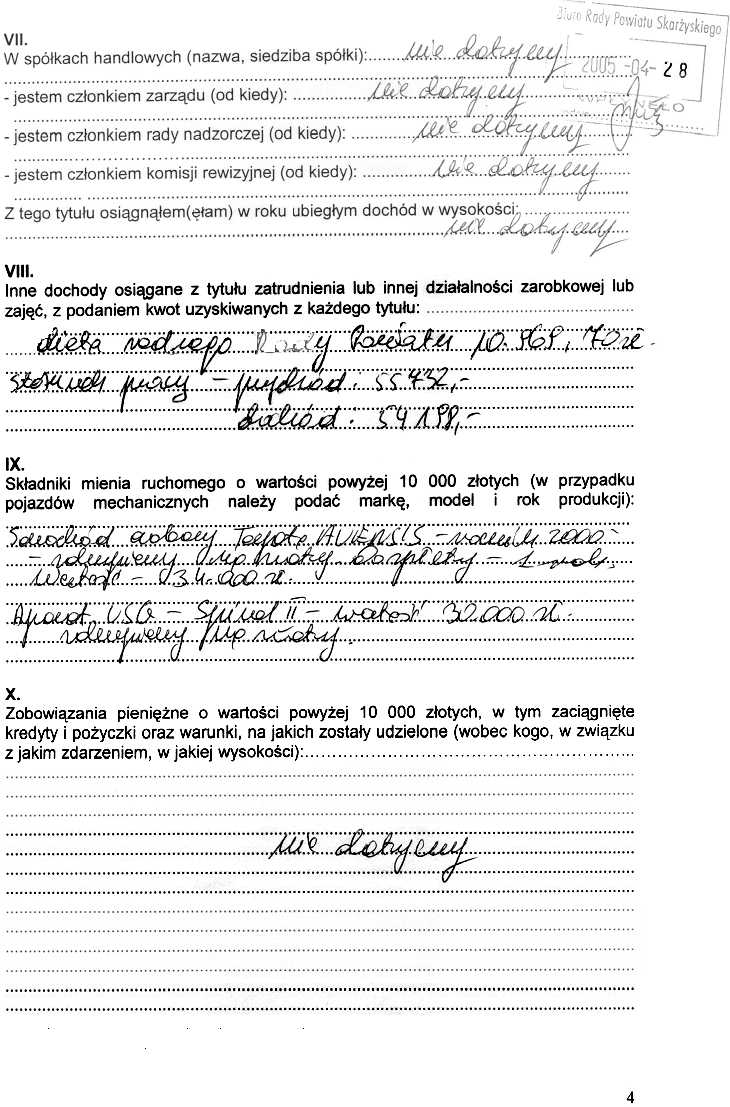 Biuro Rady Powiatu Skarżyskiego
VII.
W spółkach handlowych (nazwa, siedziba spółki):......nie dotyczy
2005 -04- 28
- jestem członkiem zarządu (od kiedy): ..............nie dotyczy
- jestem członkiem rady nadzorczej (od kiedy): ...........nie dotyczy
- jestem członkiem komisji rewizyjnej (od kiedy): .............nie dotyczy
Z tego tytułu osiągnąłem(ęłam) w roku ubiegłym dochód w wysokości: ...................
nie dotyczy
VIII.
Inne dochody osiągane z tytułu zatrudnienia lub innej działalności zarobkowej lub
zajęć, z podaniem kwot uzyskiwanych z każdego tytułu: ......................................
dieta radnego Rady Powiatu 10.969,70 zł.
Stosunek pracy – przychód: 55 732,-
dochód: 54 198,-
IX.
Składniki mienia ruchomego o wartości powyżej 10 000 złotych (w przypadku
pojazdów mechanicznych należy podać markę, model i rok produkcji):
Samochód osobowy Toyota AVENSIS – rocznik 2000 –
wartość – 34.000 zł.
Aparat USG – – wartość 30.000 zł.
X.
Zobowiązania pieniężne o wartości powyżej 10 000 złotych, w tym zaciągnięte
kredyty i pożyczki oraz warunki, na jakich zostały udzielone (wobec kogo, w związku
z jakim zdarzeniem, w jakiej wysokości):.........................................................
nie dotyczy
4